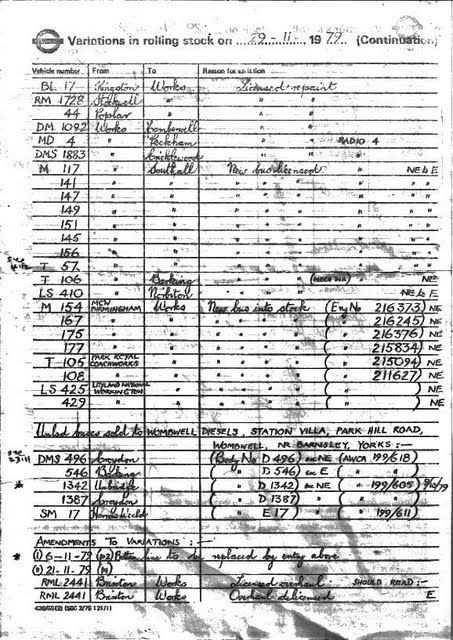 Variations in rolling stock on 29-11, 1979 (Continuation)
Vehicle number From To Reason for
BL 17 Kingston Works Licensed repaint
RM 1728 Stockwell " " "
44 Poplar " " "
DM 1092 Works Camberwell " "
MD 4 " Peckham " " RADIO 4
DMS 1883 " Cricklewood " "
M 117 " Southall New bus licensed NE to E
141 " " " " " " "
147 " " " " " " "
149 " " " " " " "
151 " " " " " " "
145 " " " " " " "
156 " " " " " " "
T 57 " " " " " "
T 106 " Barking " " " NE
LS 410 " Norbiton " " " NE to E
M 154 MCW BIRMINGHAM Works New bus into stock (Eng No 216373) NE
167 " " " " " " ( " 216245) NE
175 " " " " " " ( " 216376) NE
177 " " " " " " ( " 215834) NE
T 105 PARK ROYAL COACHWORKS " " " " " ( " 215094) NE
108 " " " " " " ( " 211627) NE
LS 425 LEYLAND NATIONAL WORKINGTON " " " " " ( " ) NE
429 " " " " " " ( " ) NE
Unlsd buses sold to WOMBWELL DIESELS, STATION VILLA, PARK HILL ROAD,
WOMBWELL, NR. BARNSLEY, YORKS :-
DMS 496 Croydon (Body No D 496) ex NE (AWOA 199/618)
546 Barking ( " D 546) ex E ( " )
* 1342 Uxbridge ( " D 1342) ex NE ( " 199/605)
1387 Croydon ( " D 1387) " ( " )
SM 17 ( " E 17) " ( " 199/611)
AMENDMENTS TO VARIATIONS :-
* (1) 6-11-79 (p2) Bottom line to be replaced by entry above
(2) 21-11-79
RML 2441 Brixton Works Licensed overhaul SHOULD READ :-
RML 2441 Brixton Works Overhaul delicensed E